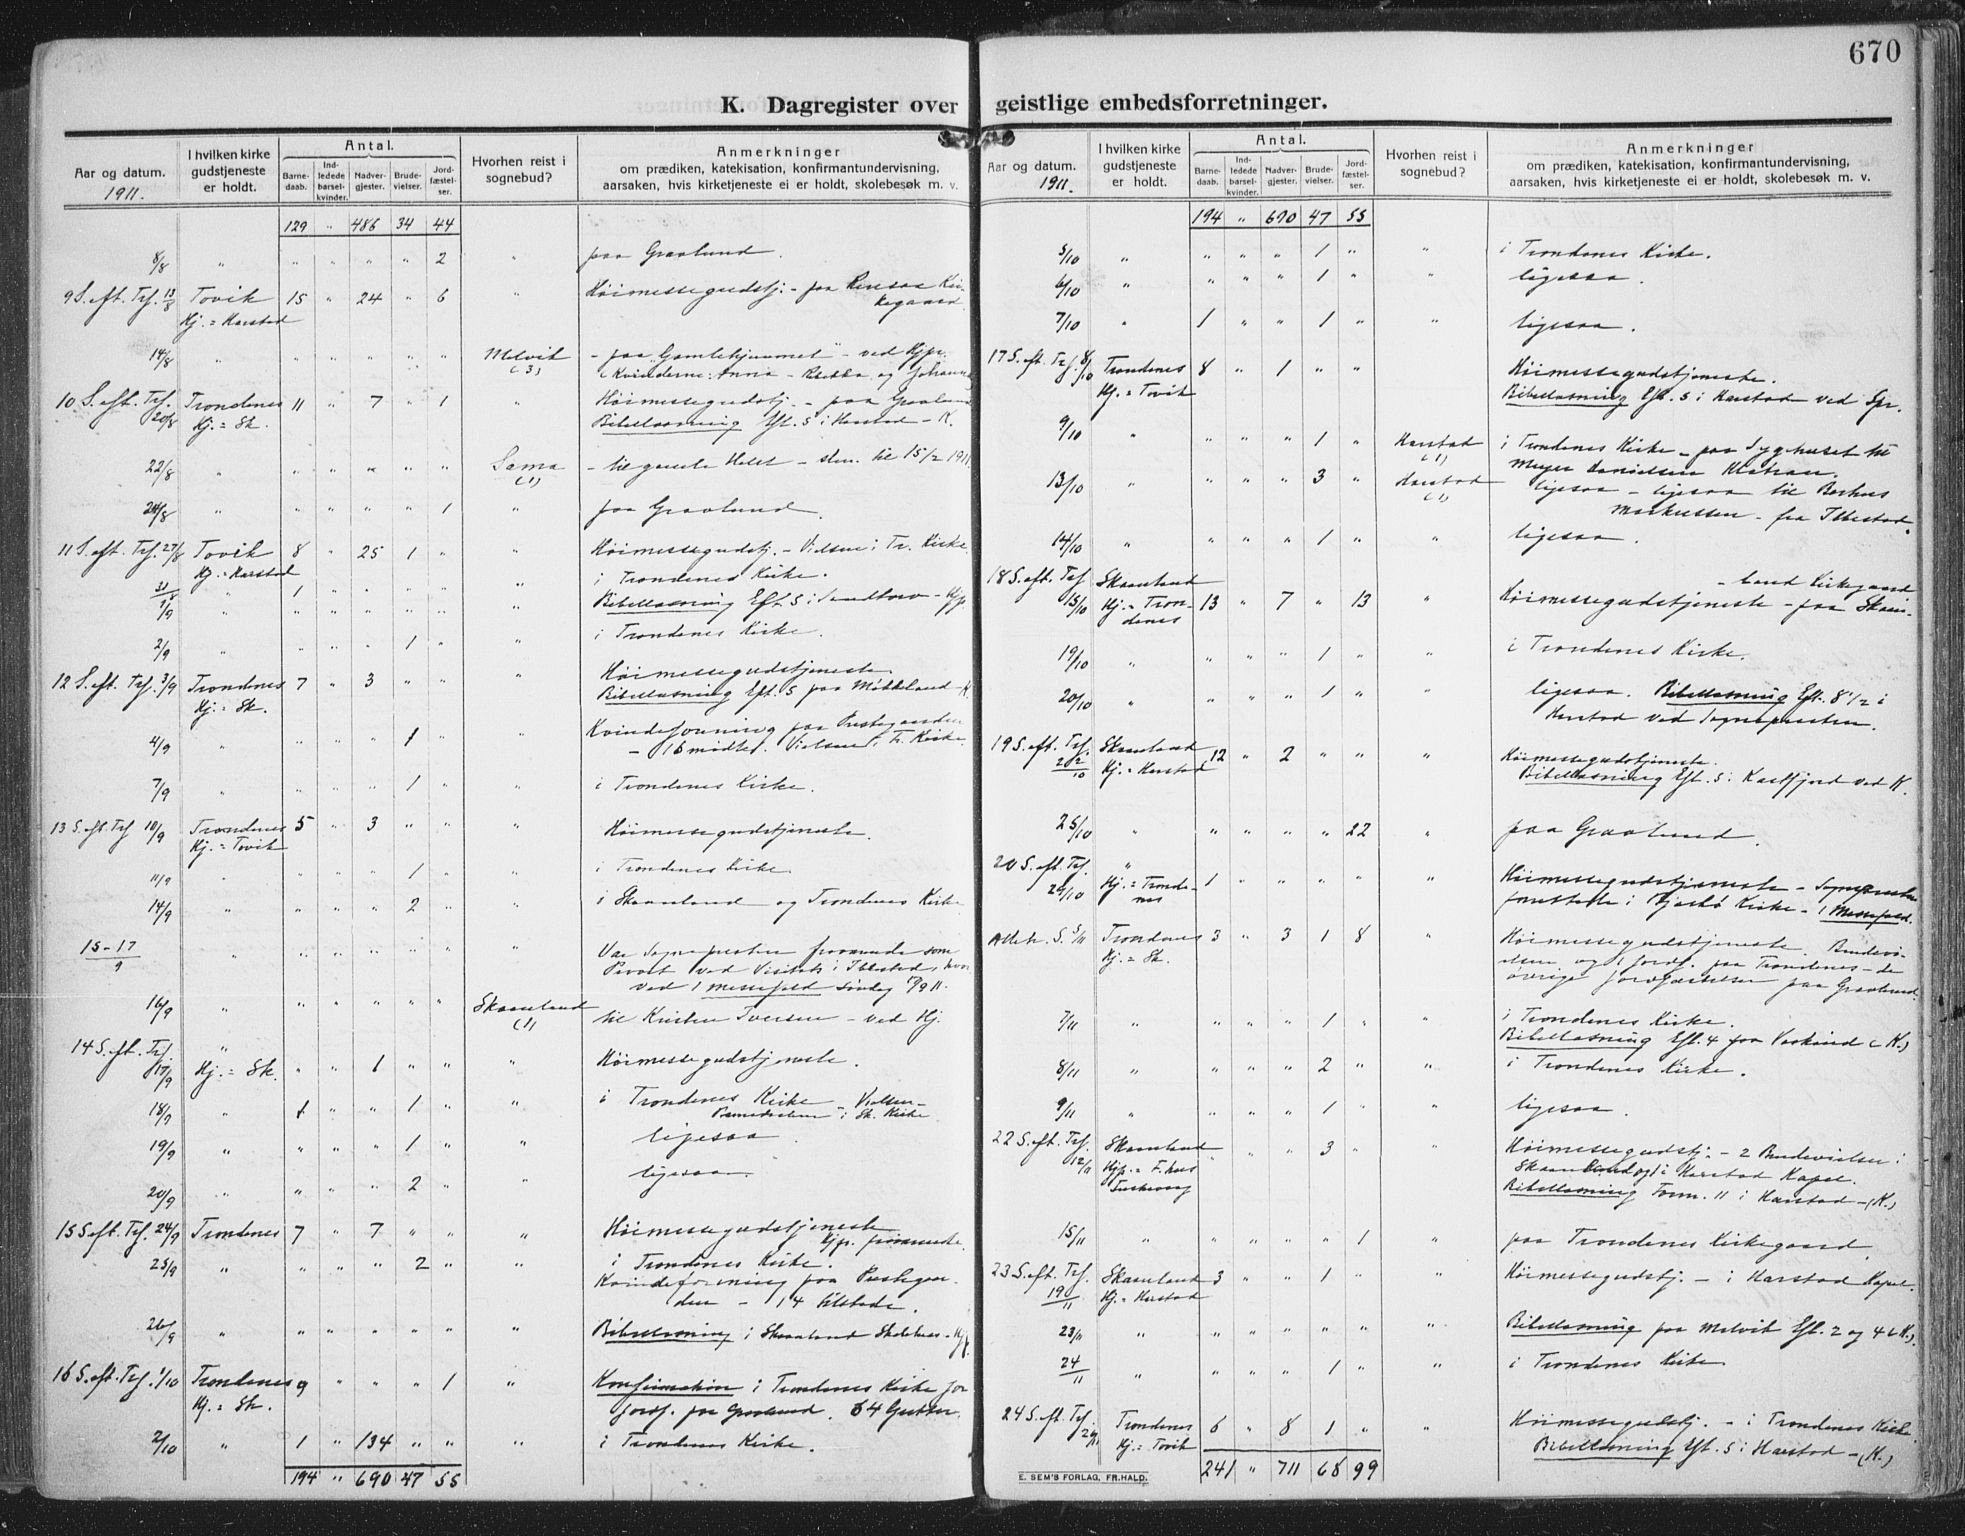 670
K. Dagregister over geistlige embedsforretninger.
Aar og datum.
1911.
I hvilken kirke
gudstjeneste
er holdt.
Antal.
Barne-
daab.
Ind-
ledede
barsel-
kvinder.
Nadver-
gjester.
Brude-
vielser.
Jord-
fæstel-
ser.
Hvorhen reist i
sognebud?
Anmerkninger
om prædiken, katekisation, konfirmantundervisning,
aarsaken, hvis kirketjeneste ei er holdt, skolebesøk m. v.
129 " 486 34 44
8/8 " " " " " 2 " paa Graalund.
9 S. eft. Trf. 13/8 Tovik 15 " 24 " 6 " Höimessegudstj. - paa Rensaa Kir-
Hj. = Harstad kegaard
14/8 " " " " " " Melvik - paa "Gamlehjemmet" - ved Hjpr.
(3) Kvinderne: Anna - Rebekka og Johanna
10 S. eft. Trf. Trondenes 11 " 7 " 1 " Höimessegudstj. - paa Graalund
20/8 Hj. = Sk. Bibellæsning Eft. 5 i Harstad - K.
22/8 " " " " " " Sama - til gamle - 15/2 1911
(1)
24/8 " " " " " 1 " paa Graalund.
11 S. eft. Trf. 27/8 Tovik 8 " 25 1 " " Höimessegudstj. - Vielsen i Tr. Kirke.
Hj. = Harstad
31/8 " 1 " " " " " i Trondenes Kirke.
1/9 " " " Bibellæsning Eft. 5 i Sandtorv - Hjp.
2/9 " " " " 1 " " i Trondenes Kirke.
12 S. eft. Trf. 3/9 Trondenes 7 " 3 " " " Höimessegudstjeneste.
Hj. = Sk. Bibellæsning Eft. 5 paa Møkkeland - K.
4/9 " " " " 1 " " Kvindeforening paa Prestegaarden
- 16 mødte. Vielsen i Tr. Kirke.
7/9 " " " " 1 " " i Trondenes Kirke.
13 S. eft. Trf 10/9 Trondenes 5 " 3 " " " Höimessegudstjeneste.
Hj. = Tovik
11/9 " " " " 1 " " i Trondenes Kirke.
14/9 " " " " 2 " " i Skaanland og Trondenes Kirke
15-17/9 " " " " " " " Var Sognepresten fraværende som
Provst ved Visitats i Ibestad, hvor
ved 1 messefald Søndag 17/9 11.
16/9 " " " " " " Skaanland til Kristen Iversen - ved Hj.
(1)
14 S. eft. Trf. "
17/9 Hj. = Sk. " " 1 " " " Höimessegudstjeneste.
18/9 " 1 " " 1 " " i Trondenes Kirke - Vielsen
i Sk. Kirke
19/9 " " " " 1 " " ligesaa.
20/9 " " " " 2 " " ligesaa.
15 S. eft. Trf. 24/9 Trondenes 7 " 7 " " " Höimessegudstjeneste
Hjp. fraværende.
25/9 " " " " 2 " " i Trondenes Kirke.
Kvindeforening paa Prestegaar-
den - 14 tilstede.
26/9 " " " " " " " Bibellæsning i Skaanland Skolehus - Hjp.
16 S. eft. Trf. 1/10 Trondenes 9 " " " 1 " Konfirmation i Trondenes Kirke for
Hj. = Sk. Jordf. paa Graalund. 64 Gutter.
2/10 " 1 " 134 " " " i Trondenes Kirke.
194 " 690 47 55
Aar og datum.
1911.
I hvilken kirke
gudstjeneste
er holdt.
Antal.
Barne-
daab.
Ind-
ledede
barsel-
kvinder.
Nadver-
gjester.
Brude-
vielser.
Jord-
fæstel-
ser.
Hvorhen reist i
sognebud?
Anmerkninger
om prædiken, katekisation, konfirmantundervisning,
aarsaken, hvis kirketjeneste ei er holdt, skolebesøk m. v.
194 " 690 47 55
5/10 " " " " 1 " " i Trondenes Kirke.
6/10 " " " " 1 " " ligesaa.
7/10 " 1 " " 1 " " ligesaa.
17 S. eft. Trf. 8/10 Trondenes 8 " 1 " " Höimessegudstjeneste.
Hj. = Tovik Bibellæsning Eft. 5 i Harstad ved Spr.
9/10 " " " " 1 " Harstad i Trondenes Kirke - paa Sygehuset til
(1) Meyer Danielsen
13/10 " " " " 3 " Harstad ligesaa - ligesaa til
(1) Markussen - fra Ibestad.
14/10 " " " " 1 " " ligesaa.
18 S. eft. Trf Skaanland - land Kirkegaard
15/10 Hj. = Tron- 13 " 7 " 13 " Höimessegudstjeneste - paa Skaan-
denes
19/10 " " " " 1 " " i Trondenes Kirke.
20/10 " " " " 1 " " ligesaa. Bibellæsning Eft. 8 1/2 i
Harstad ved Sognepresten.
19 S. eft. Trf. Skaanland 12 " 2 " " " Höimessegudstjeneste.
22/10 Hj. = Harstad Bibellæsning Eft. 5 i Kasfjord ved K.
25/10 " " " " " 22 " paa Graalund.
20 S. eft. Trf. "
29/10 Hj. = Tronde- 1 " " " " " Höimessegudstjeneste - Sognepresten
nes i Kirke - 1 Messefald.
Alleh. S. 5/11 Trondenes 3 " 3 1 8 " Höimessegudstjeneste. Brudevi-
Hj. = Sk. elsen og 1 Jordf. paa Trondenes - de
övrige Jordfæstelser paa Graalund.
7/11 " " " " 1 " " i Trondenes Kirke.
Bibellæsning Eft. 4 paa (K.)
8/11 " " " " 2 " " i Trondenes Kirke.
9/11 " " " " 1 " " ligesaa.
22 S. eft. Trf. Skaanland
12/11 Hjp. = F. hus " " " 3 " " Höimessegudstj. - 2 Brudevielser i
Skaanland og 1 i Harstad Kapel.
Bibellæsning Form. 11 i Harstad - (K.)
15/11 " " " " " 1 " paa Trondenes Kirkegaard.
23 S. eft. Trf. Skaanland 3 " " 1 " " Höimessegudstj. - i Harstad Kapel.
19/11 Hj. = Harstad
23/11 " " " " " " " Bibellæsning paa Melvik Eft. 2 og 4 (K.)
24/11 " " " " 1 " " i Trondenes Kirke
24 S. eft. Trf. Trondenes 6 " 8 1 " " Höimessegudstj. - i Trondenes Kirke
26/11 Hj. = Tovik Bibellæsning Eft. 5 i Harstad - (K.)
241 " 711 68 99
E. SEM'S FORLAG, FR.HALD.